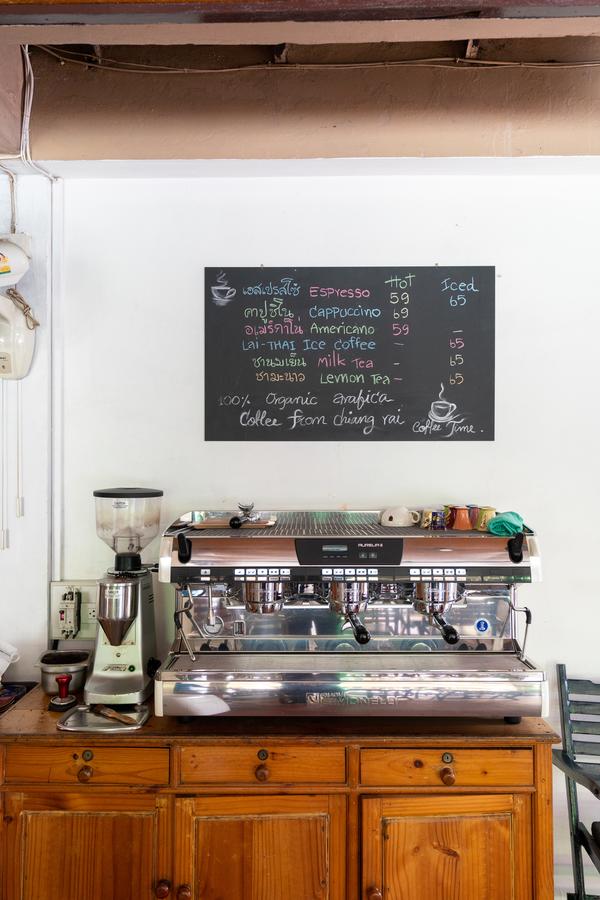 Hot Iced
เอสเปรสโซ่ Espresso 59 65
คาปูชิโน Cappuccino 69
อเมริกาโน่ Americano 59 –
Lai-THAI Ice Coffee – 65
ชานมเย็น Milk Tea – 65
ชามะนาว Lemon Tea – 65
100% Organic arabica
Coffee from chiang rai
Coffee Time.
AURELIA II